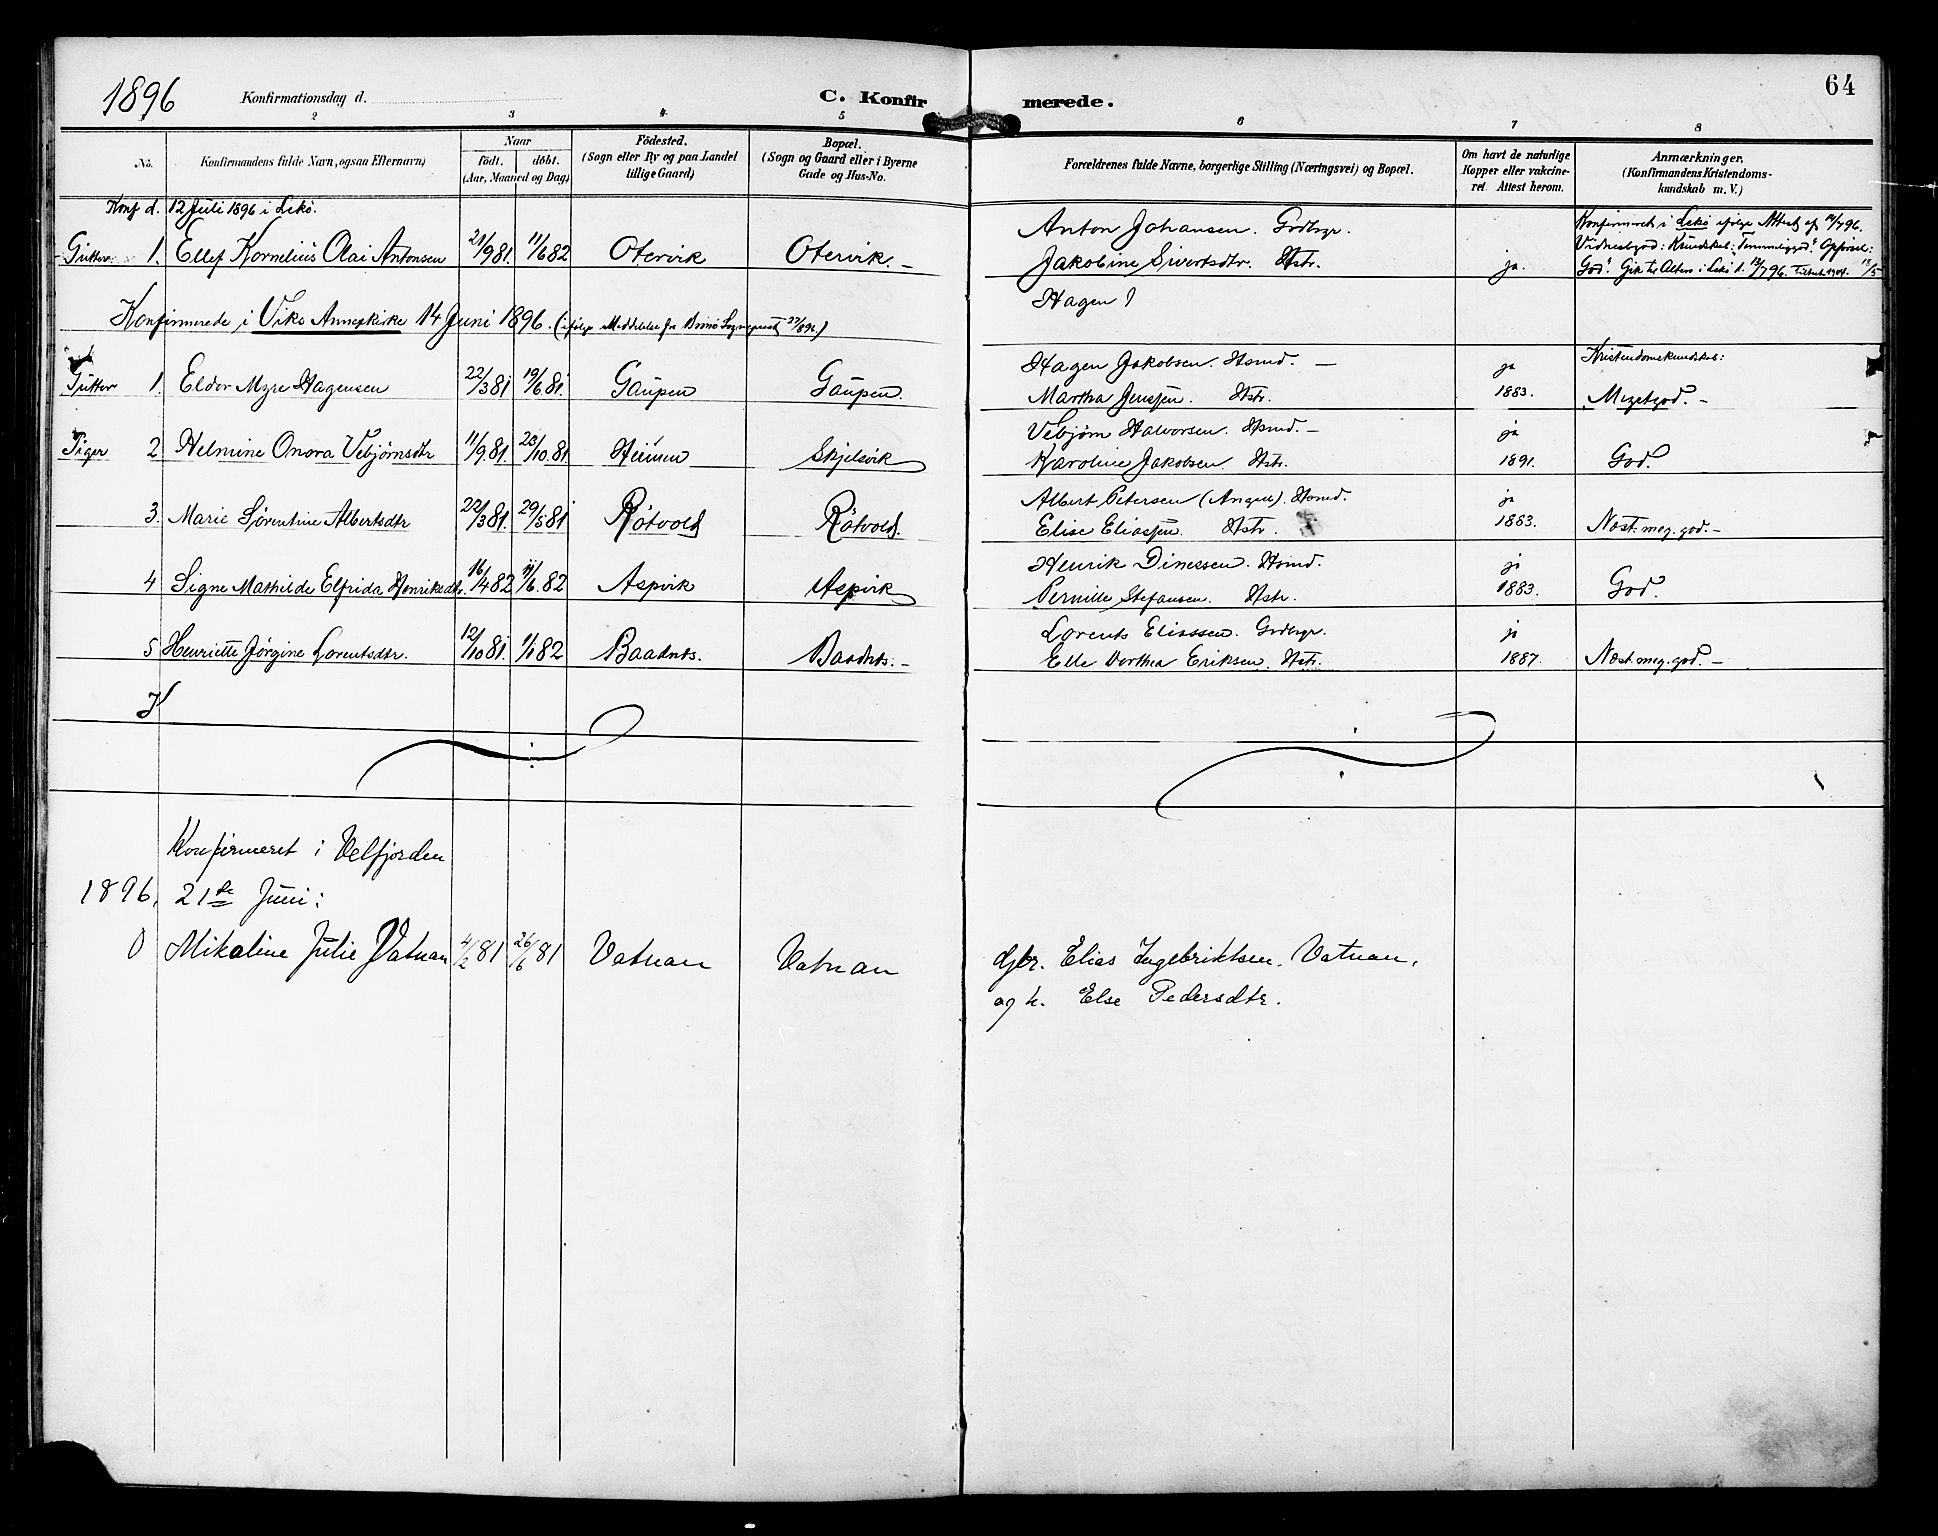 1896 Konfirmationsdag d. C. Konfir merede. 64
2 3 4 5 6 7 8
No. Konfirmandens fulde Navn, ogsaa Efternavn) Naar Födested. Bopæl. Forældrenes fulde Navne, borgerlige Stilling (Næringsvei) og Bopæl. Om havt de naturlige Anmærkninger.
födt. döbt. (Sogn eller By og paa Landet (Sogn og Gaard eller i Byerne Kopper eller vakcine- (Konfirmandens Kristendoms-
(Aar, Maaned og Dag) tillige Gaard) Gade og Hus-No. ret. Attest herom. kundskab m. V.)
Konf d. 12 Juli 1896 i Lekö.
Anton Johansen. Gdbrgr. Konfirmeret i Lekö ifölge Attest af 14/7 96.
Gutter: 1. Ellef Kornelius Olai Antonsen 21/9 81. 11/6 82 Otervik Otervik.– Jakobine Sivertsdtr. Hstr. ja. Vidnesbyrd: Kundskab: Temmeliggod. Opförsel:
God. Gik til Alters i Lekö d. 12/7 96.
Hagen
Konfirmerede i Viks Annexkirke 14 Juni 1896. (ifölge Meddelelse fra Brönö Sognepræst
Hagen Jakobsen. Hsmd. – ja Kristendomskundskab:
Gutter 1. Eldor Myre Hagensen 22/3 81. 19/6 81. Gaupen Gaupen. Martha Jensen. Hstr. 1883. Megetgod. –
Vebjörn Halvorsen. Hsmd. – ja
Piger 2 Helmine Onora Vebjörnsdtr 11/9 81. 23/10. 81. Skjelsvik Karoline Jakobsen. Hstr. 1891. God.
Albert Petersen Hsmd. ja
3. Marie Sörentine Albertsdtr 22/3 81. 29/5 81 Rötvold Rötvold. Elise Eliassen. Hstr. 1883. Næst: meg. god. –
Henrik Dinessen. Hsmd. ja
4 Signe Mathilde Elfrida Henriksdtr. 16/4 82 11/6. 82 Aspvik Aspvik Pernille Stefansen. Hstr. 1883. God.
Lorents Eliassen. Gdbrgr. ja
5 Henriette Jörgine Lorentsdtr. 12/10 81. 1/1 82 Baadnts. Baadnts. – Elle Dorthea Eriksen. Hstr. 1887. Næst. meg. god. –
Konfirmeret i Velfjorden
1896, 21de Juni:
0 Mikaline Julie Vatnan 4/2 81 26/6 81 Vatnan Vatnan Gbr. Elias Ingebriktsen. Vatnan,
og h. Else Pedersdtr.